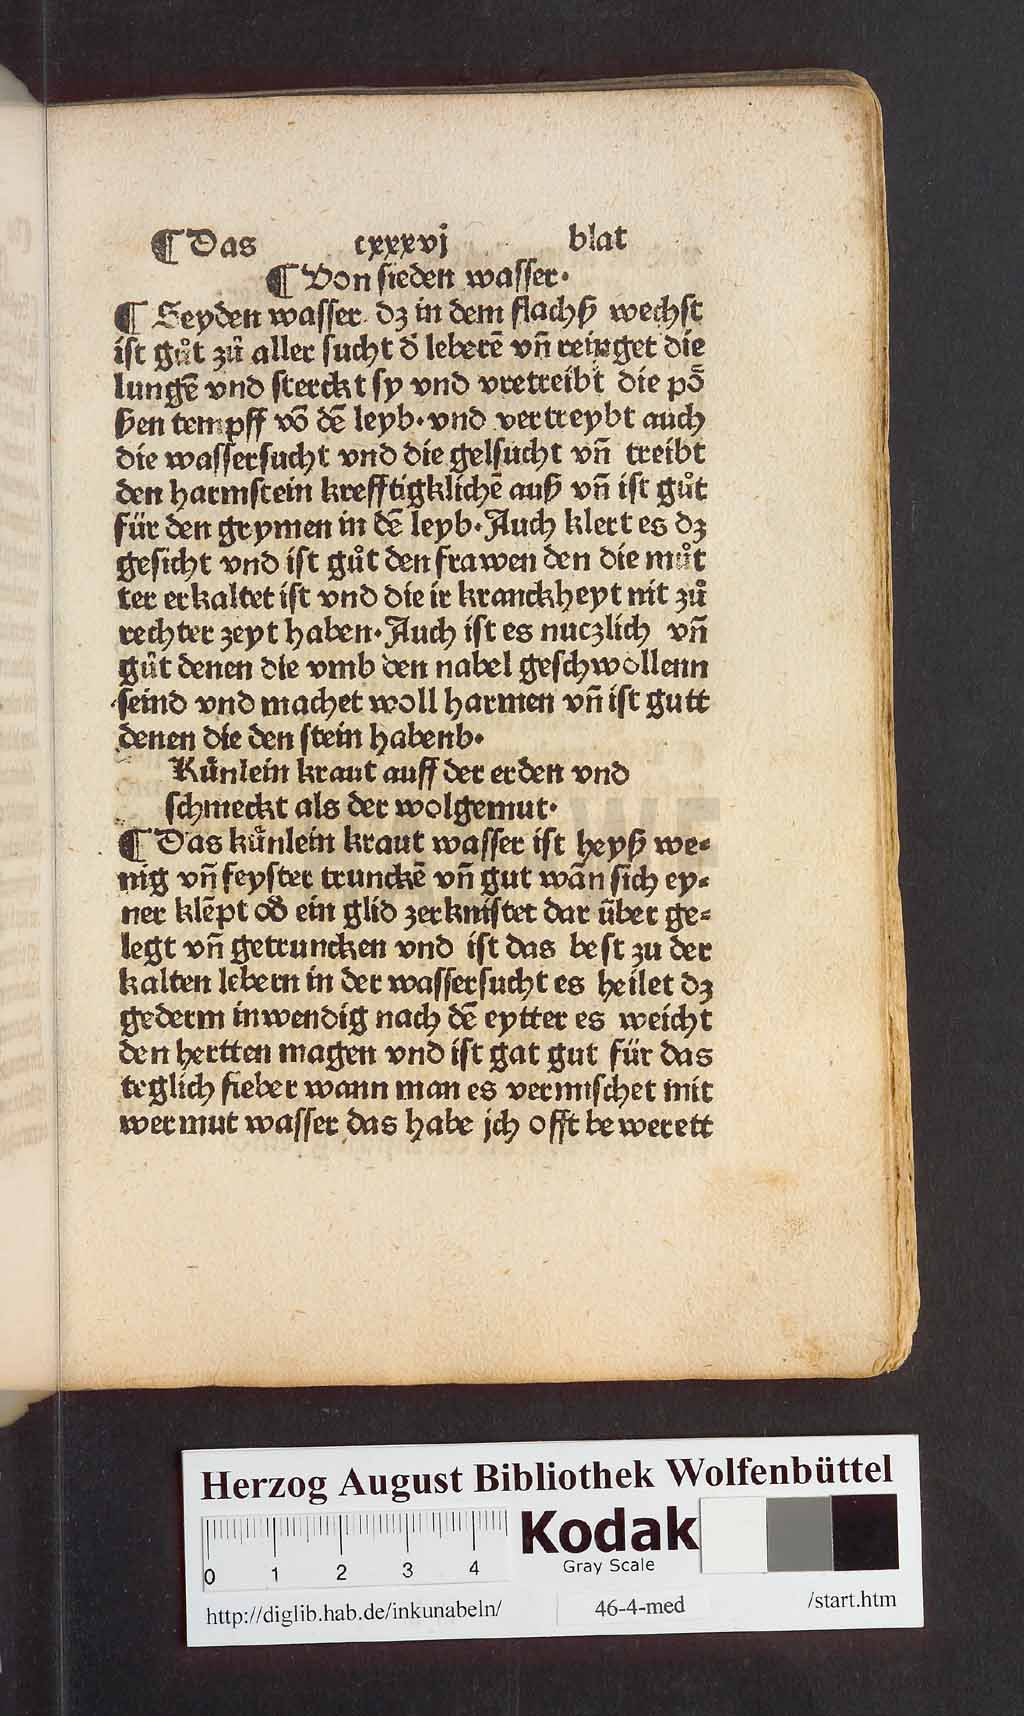 ¶ Das cxxxvj blat
¶ Von sieden wasser·
¶ Seyden wasser dz in dem flachß wechst
ist gůt zů aller sucht d̕ leberē vñ reinget die
lungē vnd sterckt sy vnd vretreibt die pȫ
ßen tempff vō dē leyb·vnd vertreybt auch
die wassersucht vnd die gelsucht vñ treibt
den harmstein krefftigklichē auß vñ ist gůt
für den grymen in dē leyb·Auch klert es dz
gesicht vnd ist gůt den frawen den die můt
ter erkaltet ist vnd die ir kranckheyt nit zů
rechter zeyt haben·Auch ist es nuczlich vñ
gůt denen die vmb den nabel geschwollenn
seind vnd machet woll harmen vñ ist gutt
denen die den stein habenb·
Kűnlein kraut auff der erden vnd
schmeckt als der wolgemut·
¶ Das kűnlein kraut wasser ist heyß we⸗
nig vñ feyster trunckē vñ gut wān sich ey⸗
ner klēpt od̕ ein glid zerknistet dar über ge⸗
legt vñ getruncken vnd ist das best zu der
kalten lebern in der wassersucht es heilet dz
gederm inwendig nach dē eytter es weicht
den hertten magen vnd ist gat gut für das
teglich fieber wann man es vermischet mit
wermut wasser das habe jch offt bewerett
Herzog August Bibliothek Wolfenbüttel
0 1 2 3 4
Kodak
Gray Scale
http://diglib.hab.de/inkunabeln/ 46-4-med /start.htm